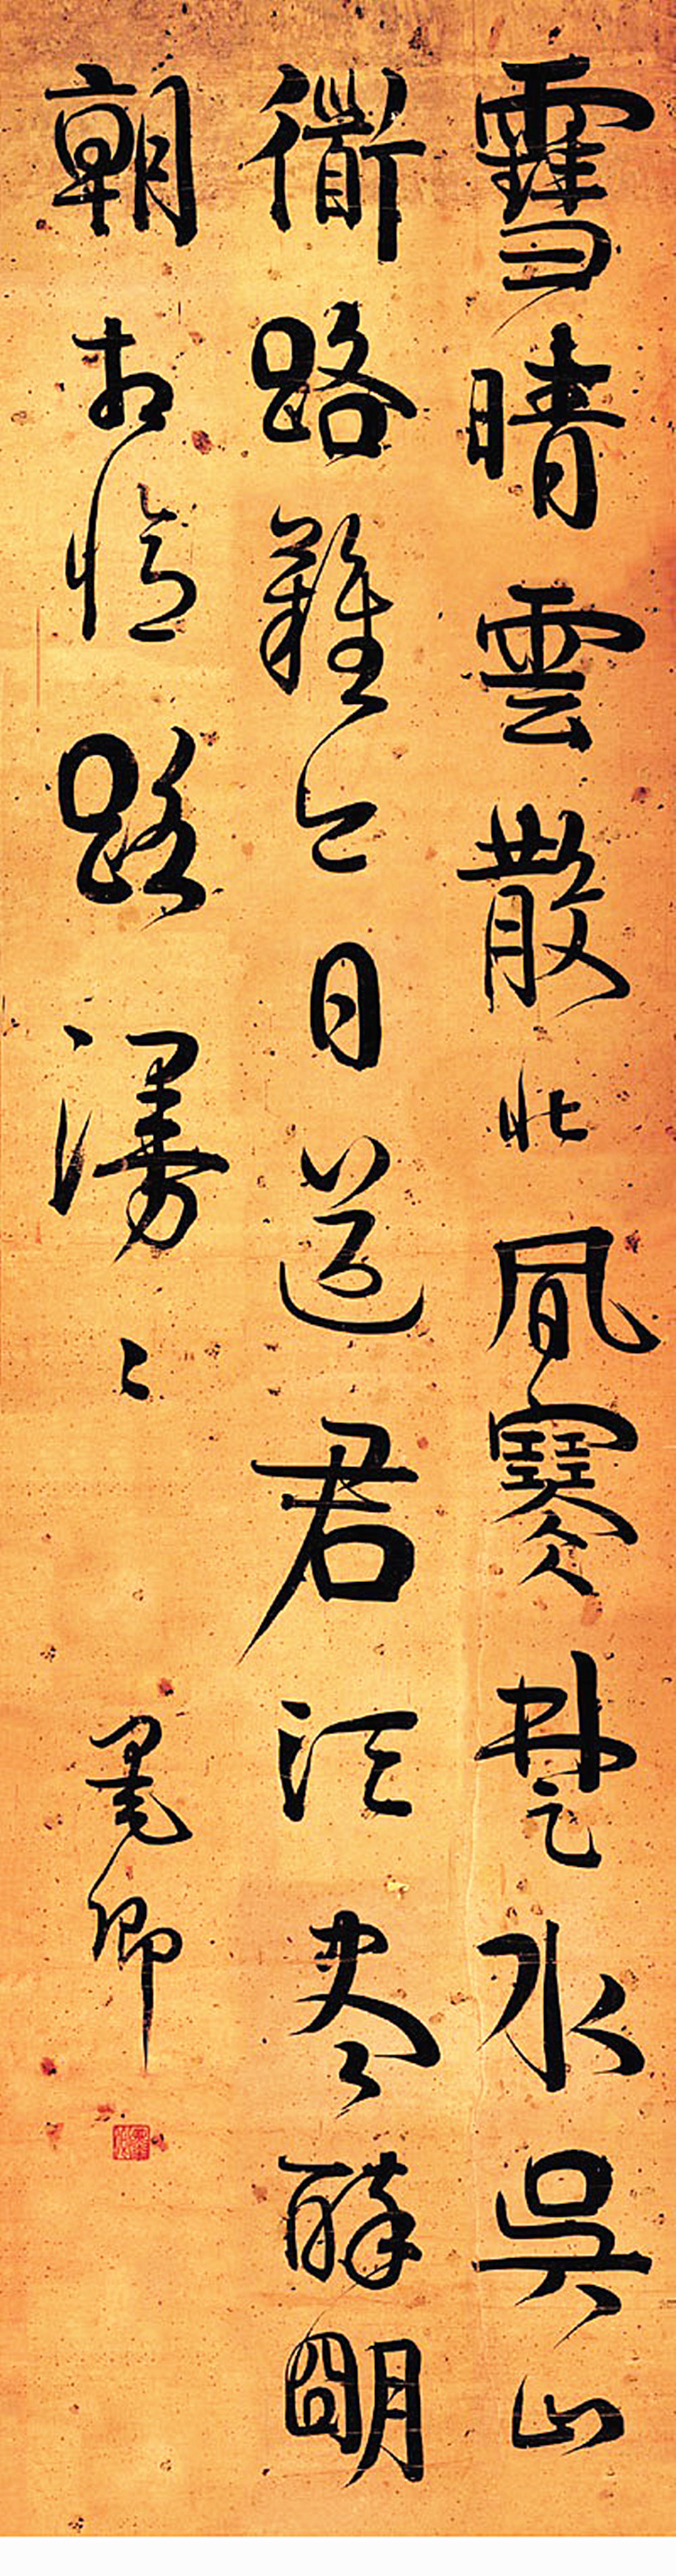 雪晴雲散北風寒楚水吳山
衜路難今日送君須盡醉朙
朝相憶路漫〻
墨卿